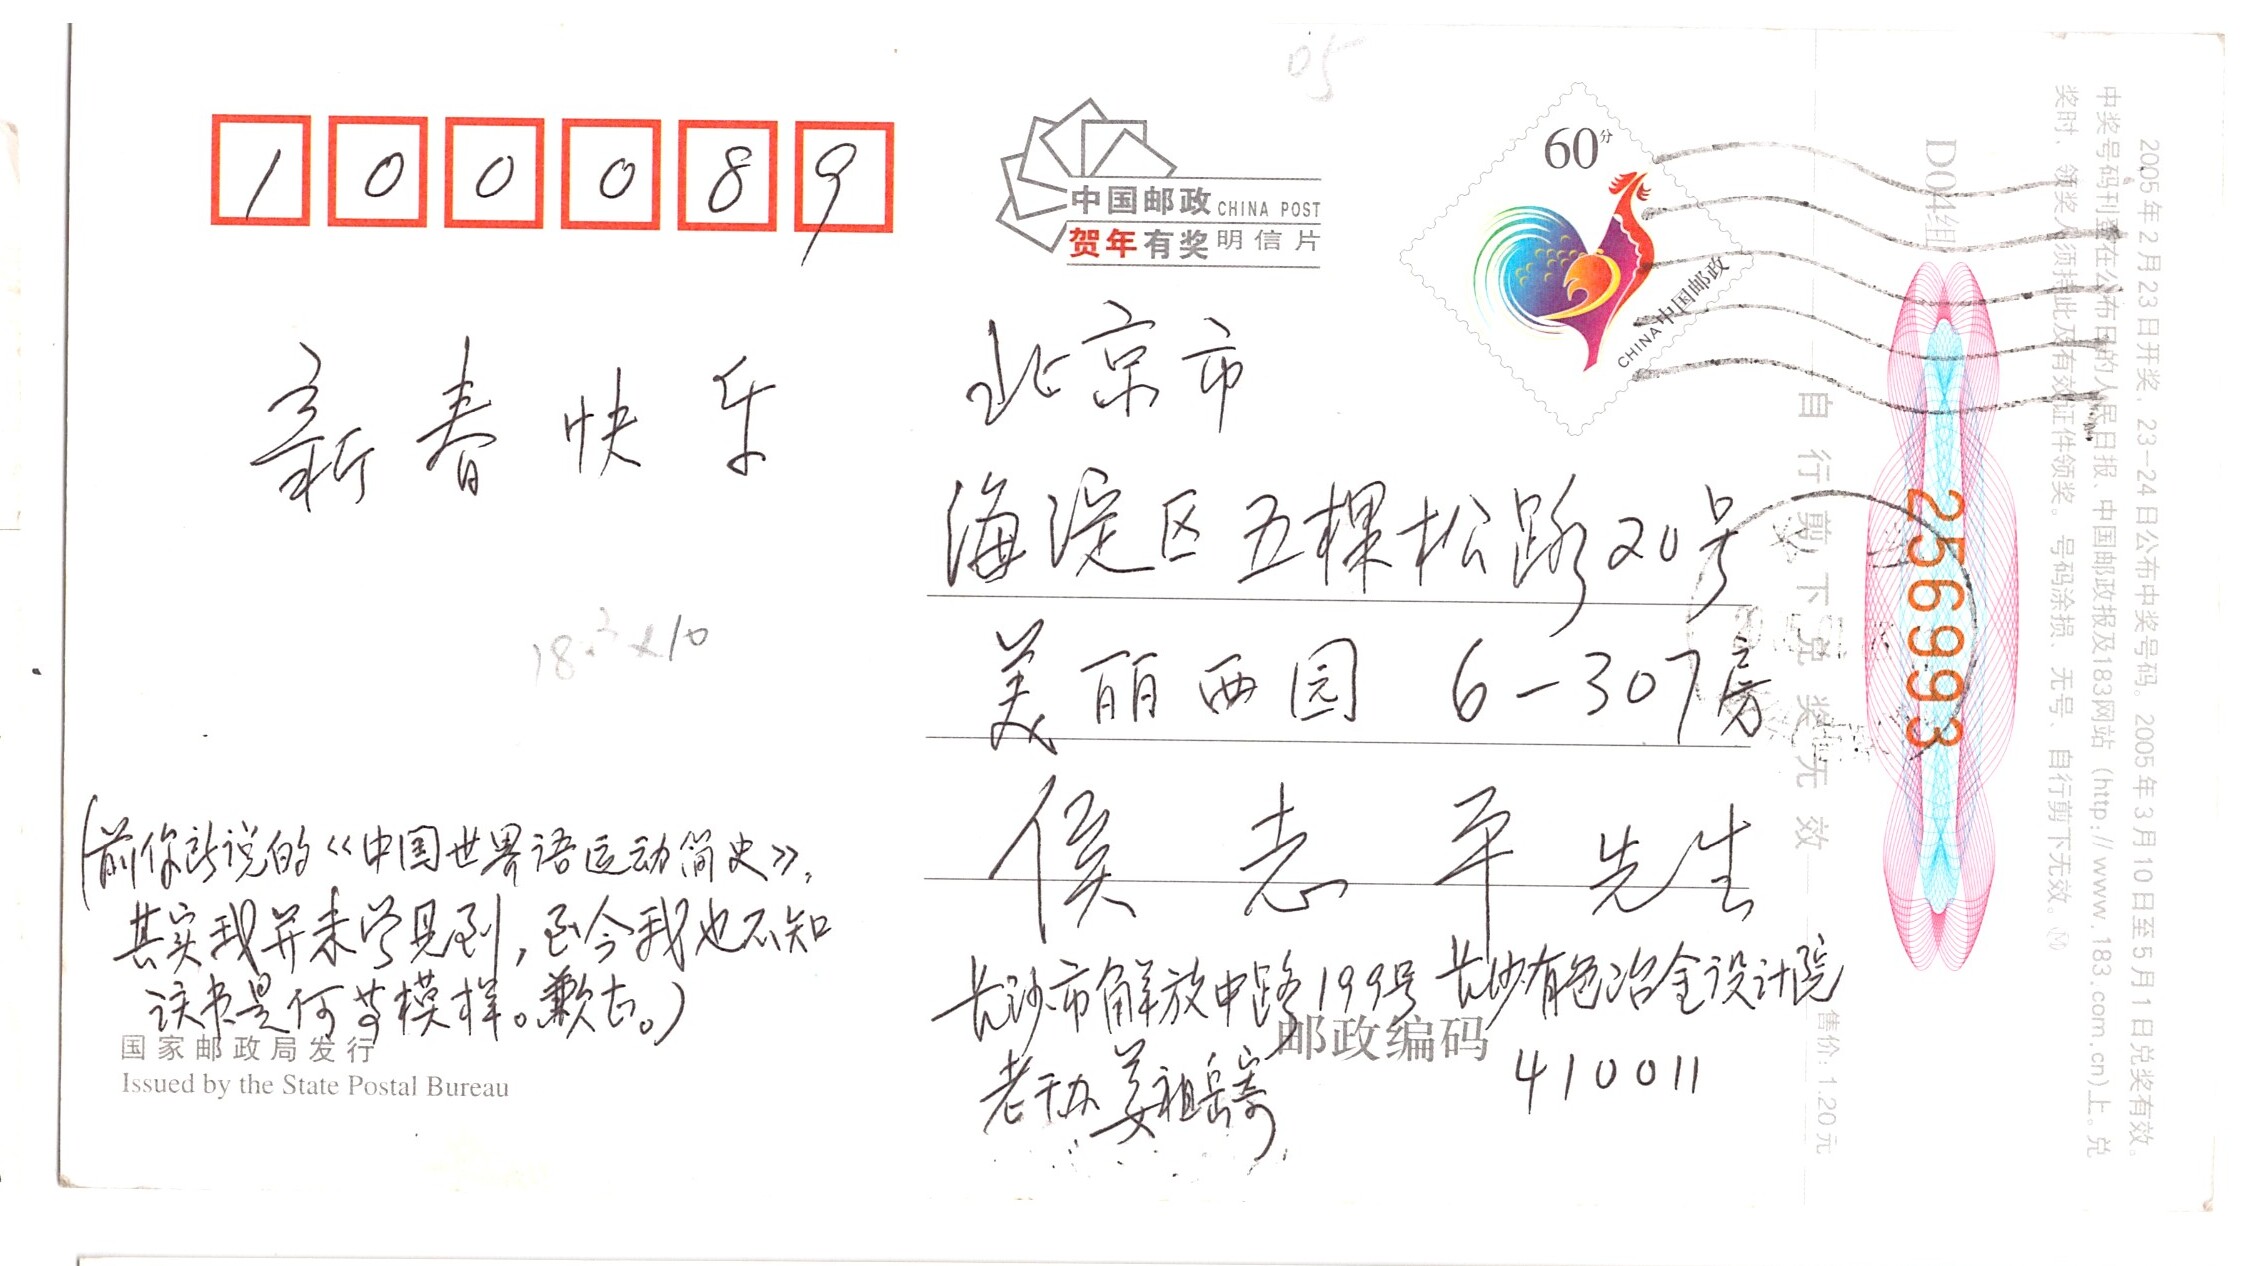 05
100089
中国邮政 CHINA POST
贺年有奖明信片
60分
中国邮政
CHINA
新春快乐
北京市
海淀区五棵松路20号
美丽西园 6-307房
侯志平先生
长沙市解放中路199号长沙有色冶金设计院
邮政编码
老干办 姜祖岳寄 410011
(前你所说的《中国世界语运动简史》,
其实我并未学见到,至今我也不知
该书是何等模样。歉甚。)
国家邮政局发行
Issued by the State Postal Bureau
自行剪下兑奖无效
售价:1.20元
D04组
256993
2005年2月23日开奖,23-24日公布中奖号码。2005年3月10日至5月1日兑奖有效。
中奖号码刊登在公布日的人民日报、中国邮政报及183网站(http://www.183.com.cn)上。兑
奖时,领奖人须持此及有效证件领奖。号码涂损、无号、自行剪下无效。